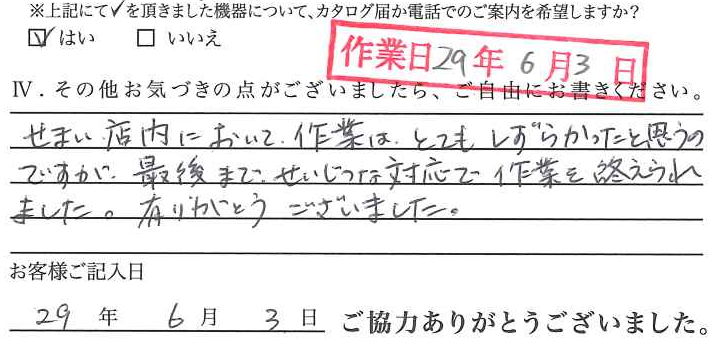 ※上記にて✓を頂きました機器について、カタログ届か電話でのご案内を希望しますか?
☑ はい □ いいえ
作業日29年6月3日
Ⅳ．その他お気づきの点がございましたら、ご自由にお書きください。
せまい店内において、作業は、とてもしずらかったと思うの
ですが、最後まで、せいじつな対応で作業を終えられ
ました。有りがとうございました。
お客様ご記入日
29年 6月 3日 ご協力ありがとうございました。